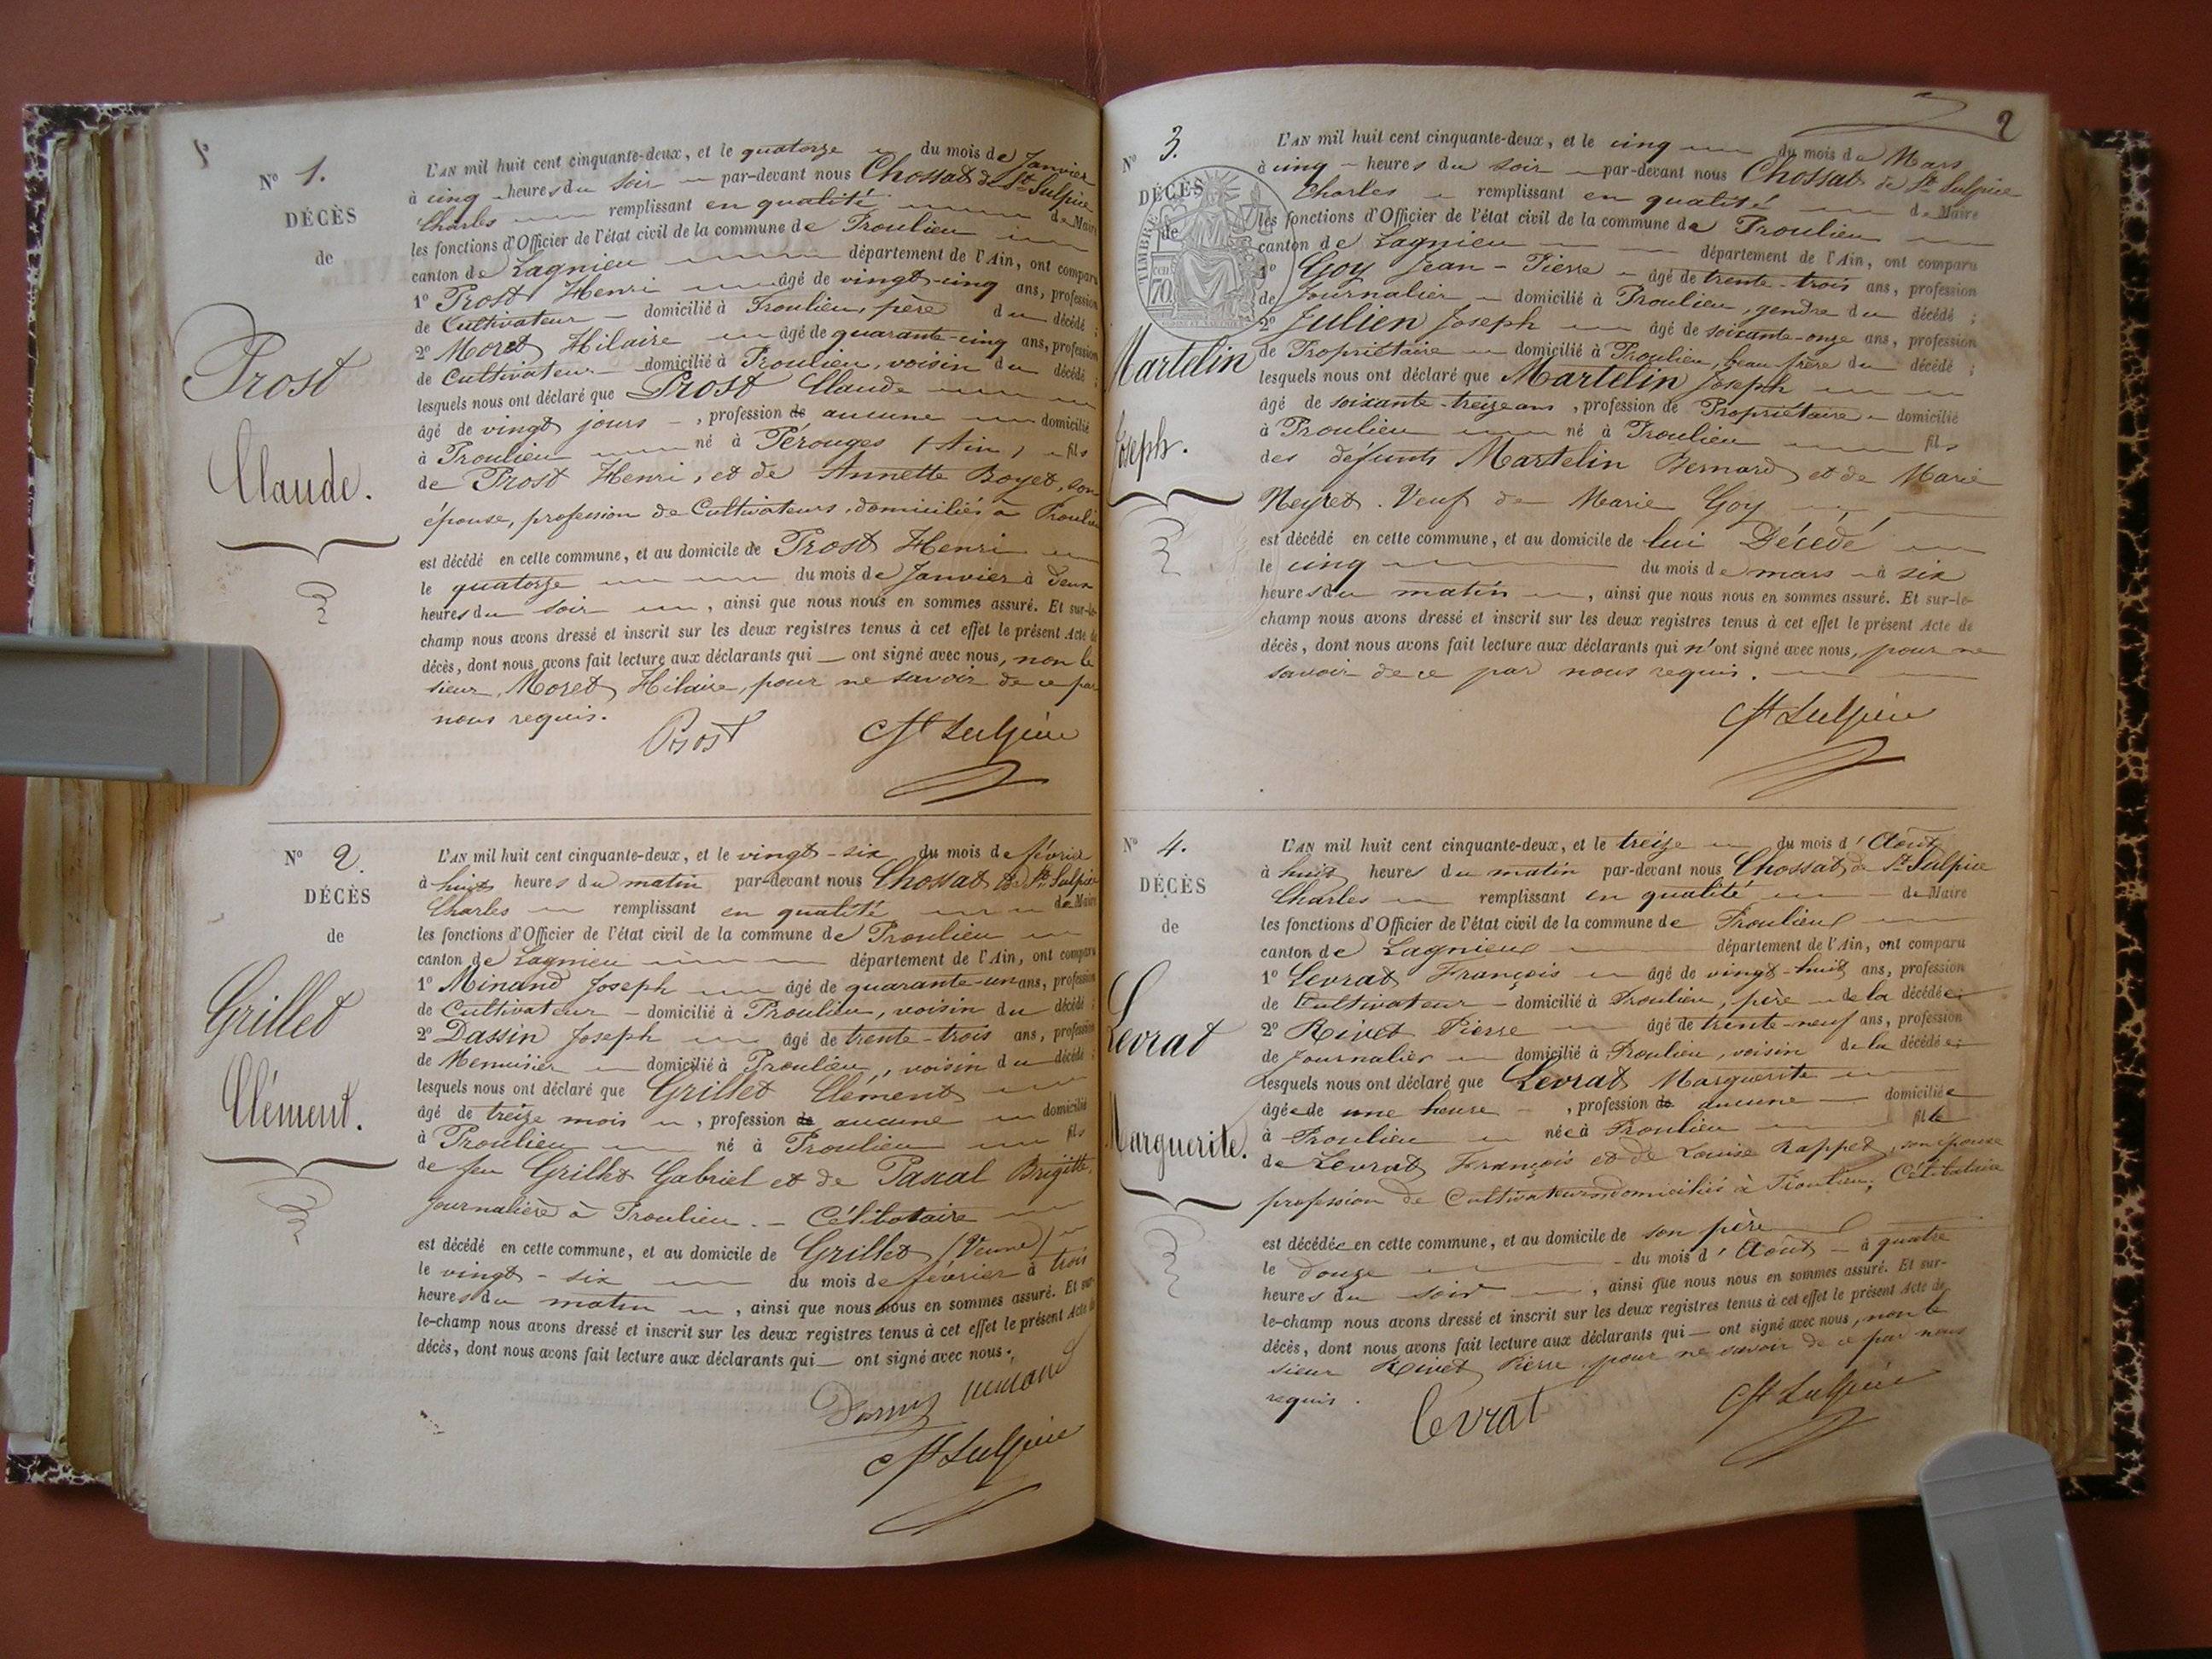 N° 1.
DÉCÈS
de
Prost
Claude.
L'AN mil huit cent cinquante-deux, et le quatorze du mois de Janvier
à cinq heures du soir par-devant nous Chossat de St Sulpice
Charles remplissant en qualité de Maire
les fonctions d'Officier de l'état civil de la commune de Proulieu
canton de Lagnieu département de l'Ain, ont comparu
1° Prost Henri âgé de vingt-cinq ans, profession
de Cultivateur domicilié à Proulieu, père du décédé ;
2° Moret Hilaire âgé de quarante-cinq ans, profession
de Cultivateur domicilié à Proulieu, voisin du décédé ;
lesquels nous ont déclaré que Prost Claude
âgé de vingt jours , profession de aucune domicilié
à Proulieu né à Pérouges (Ain) fils
de Prost Henri, et de Annette Boyet, son
épouse, profession de Cultivateurs, domiciliés à Proulieu
est décédé en cette commune, et au domicile de Prost Henri
le quatorze du mois de Janvier à deux
heures du soir , ainsi que nous nous en sommes assuré. Et sur-le-
champ nous avons dressé et inscrit sur les deux registres tenus à cet effet le présent Acte de
décès, dont nous avons fait lecture aux déclarants qui — ont signé avec nous, non le
sieur Moret Hilaire, pour ne savoir de ce par
nous requis.
Prost Ch St Sulpice
N° 2.
DÉCÈS
de
Grillet
Clément.
L'AN mil huit cent cinquante-deux, et le vingt-six du mois de février
à huit heures du matin par-devant nous Chossat de St Sulpice
Charles remplissant en qualité de Maire
les fonctions d'Officier de l'état civil de la commune de Proulieu
canton de Lagnieu département de l'Ain, ont comparu
1° Minand Joseph âgé de quarante-un ans, profession
de Cultivateur domicilié à Proulieu, voisin du décédé ;
2° Dassin Joseph âgé de trente-trois ans, profession
de Menuisier domicilié à Proulieu, voisin du décédé ;
lesquels nous ont déclaré que Grillet Clément
âgé de treize mois , profession de aucune domicilié
à Proulieu né à Proulieu fils
de feu Grillet Gabriel et de Pascal Brigitte,
Journalière à Proulieu. - Célibataire
est décédé en cette commune, et au domicile de Grillet (Veuve)
le vingt-six du mois de février à trois
heures du matin , ainsi que nous nous en sommes assuré. Et sur-
le-champ nous avons dressé et inscrit sur les deux registres tenus à cet effet le présent Acte de
décès, dont nous avons fait lecture aux déclarants qui — ont signé avec nous.
minand
Ch St Sulpice
2
N° 3.
DÉCÈS
de
TIMBRE
70
Martelin
Joseph.
L'AN mil huit cent cinquante-deux, et le cinq du mois de Mars
à cinq heures du soir par-devant nous Chossat de St Sulpice
Charles remplissant en qualité de Maire
les fonctions d'Officier de l'état civil de la commune de Proulieu
canton de Lagnieu département de l'Ain, ont comparu
1° Goy Jean-Pierre âgé de trente-trois ans, profession
de Journalier domicilié à Proulieu, gendre du décédé ;
2° Julien Joseph âgé de soixante-onze ans, profession
de Propriétaire domicilié à Proulieu, beau frère du décédé ;
lesquels nous ont déclaré que Martelin Joseph
âgé de soixante-treize ans , profession de Propriétaire domicilié
à Proulieu né à Proulieu fils
des défunts Martelin Bernard et de Marie
Neyret. Veuf de Marie Goy
est décédé en cette commune, et au domicile de lui Décédé
le cinq du mois de mars à six
heures du matin , ainsi que nous nous en sommes assuré. Et sur-le-
champ nous avons dressé et inscrit sur les deux registres tenus à cet effet le présent Acte de
décès, dont nous avons fait lecture aux déclarants qui n'ont signé avec nous, pour ne
savoir de ce par nous requis.
Ch St Sulpice
N° 4.
DÉCÈS
de
Levrat
Marguerite.
L'AN mil huit cent cinquante-deux, et le treize du mois d'Août
à huit heures du matin par-devant nous Chossat de St Sulpice
Charles remplissant en qualité de Maire
les fonctions d'Officier de l'état civil de la commune de Proulieu
canton de Lagnieu département de l'Ain, ont comparu
1° Levrat François âgé de vingt-huit ans, profession
de Cultivateur domicilié à Proulieu, père de la décédée
2° Rivet Pierre âgé de trente-neuf ans, profession
de Journalier domicilié à Proulieu, voisin de la décédée
lesquels nous ont déclaré que Levrat Marguerite
âgée de une heure , profession de aucune domiciliée
à Proulieu née à Proulieu fille
de Levrat François et de Louise Rappet, son épouse
profession de Cultivateurs domiciliés à Proulieu, Célibataire
est décédée en cette commune, et au domicile de son père
le douze du mois d'Août à quatre
heures du soir , ainsi que nous nous en sommes assuré. Et sur-
le-champ nous avons dressé et inscrit sur les deux registres tenus à cet effet le présent Acte de
décès, dont nous avons fait lecture aux déclarants qui — ont signé avec nous, non le
sieur Rivet Pierre pour ne savoir de ce par nous
requis.
Levrat Ch St Sulpice